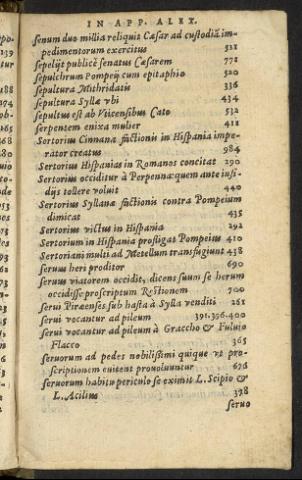 IN APP. ALEX.
senum duo millia reliquit Cæsar ad custodiā im-
pedimentorum exercitus 521
sepelijt publicè senatus Cæsarem 772
sepulchrum Pompeij cum epitaphio 520
sepultura Mithridatis 336
sepultura Syllæ vbi 434
sepultus est ab Vticensibus Cato 532
serpentem enixa mulier 411
Sertorius Cinnanæ factionis in Hispania impe-
rator creatus 984
Sertorius Hispanias in Romanos concitat 290
Sertorius occiditur à Perpenna: quem ante insi-
dijs tollere voluit 440
Sertorius Syllanæ factionis contra Pompeium
dimicat 435
Sertorius victus in Hispania 292
Sertorium in Hispania profligat Pompeius 410
Sertoriani multi ad Metellum transfugiunt 438
seruus heri proditor 690
seruus viatorem occidit, dicens suum se herum
occidisse proscriptum Restionem 700
serui Piræenses sub hasta à Sylla venditi 261
serui vocantur ad pileum 391.396.400
serui vocantur ad pileum à Graccho & Fuluio
Flacco 365
seruorum ad pedes nobilissimi quique vt pro-
scriptionem euitent prouoluuntur 676
seruorum habitu periculo se eximit L. Scipio &
L. Acilius 378
seruo
139
188
174
194
188
165
168